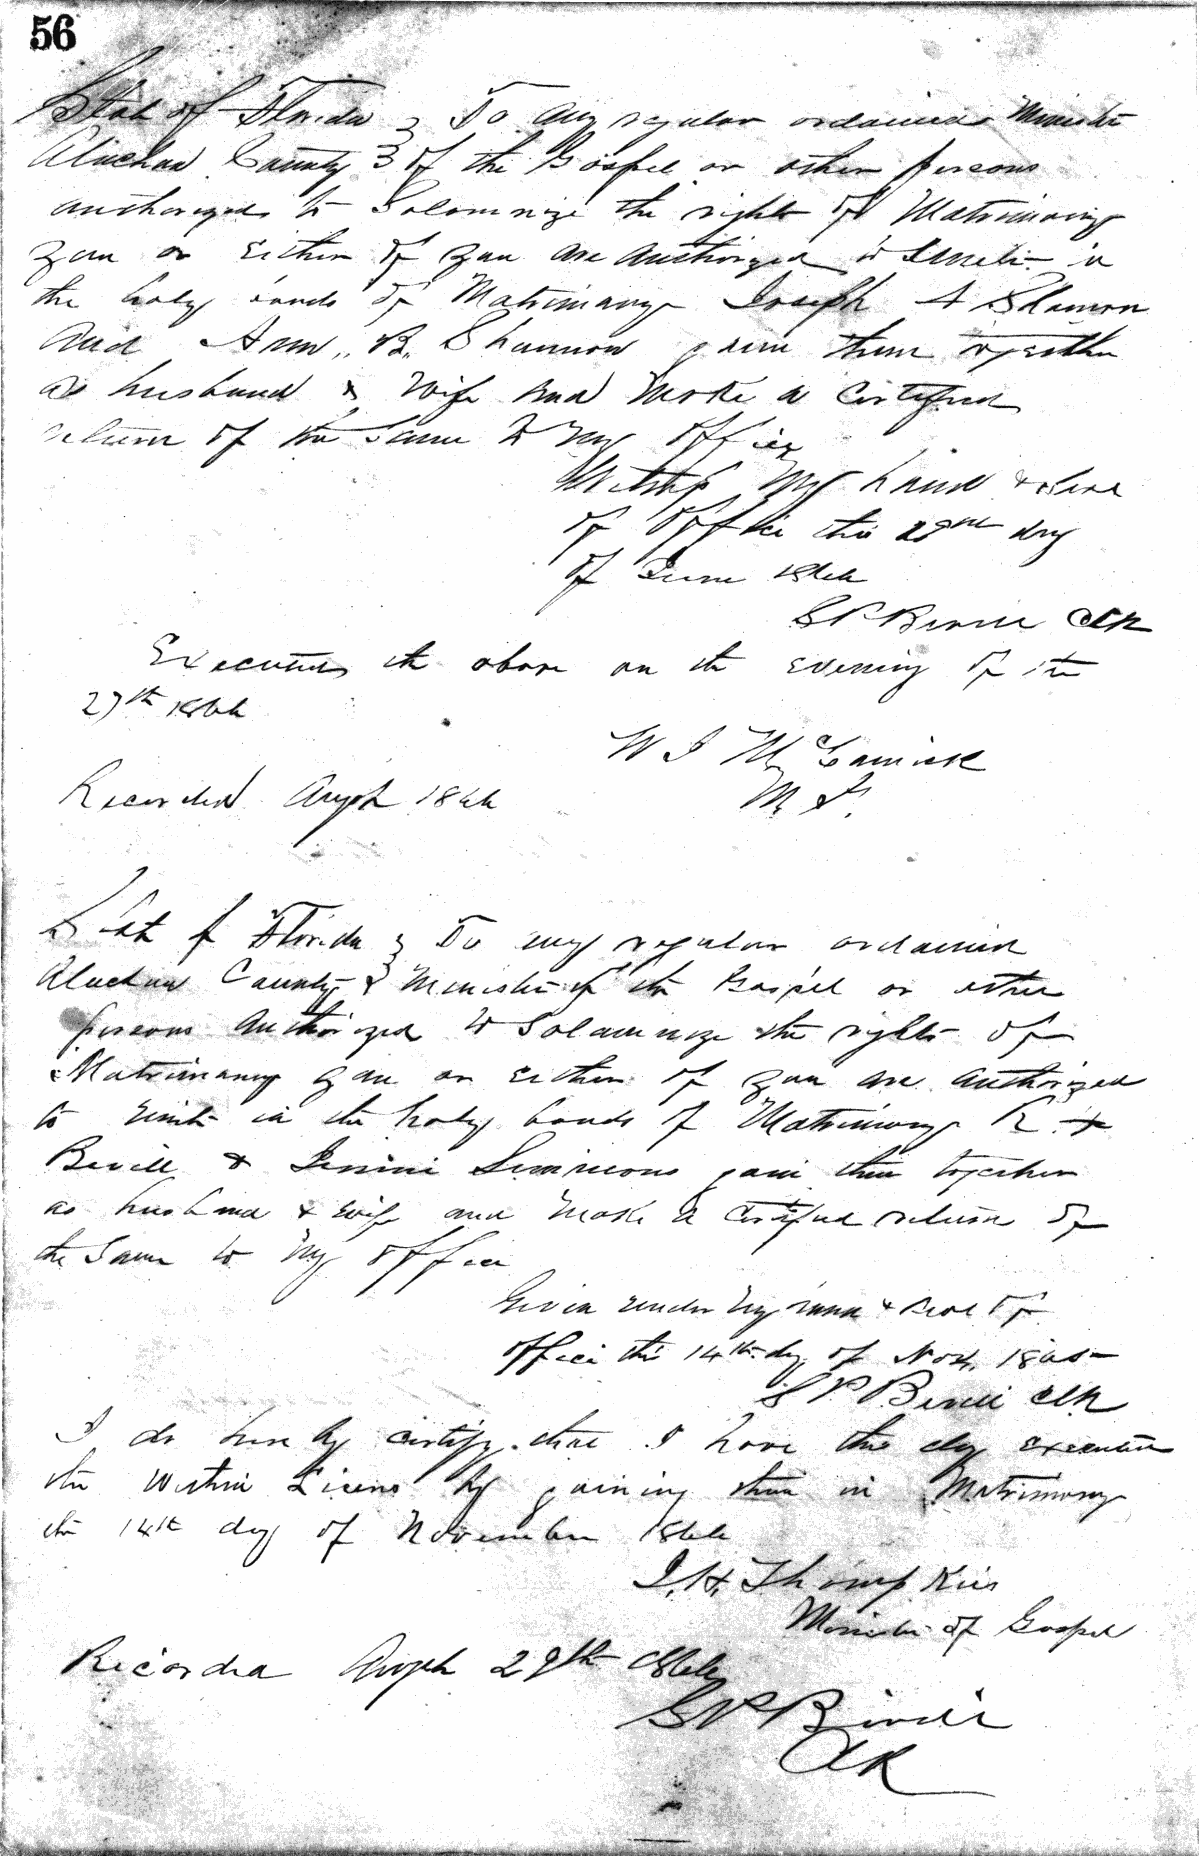 56
State of Florida } To any regular ordained Minister
Alachua County } of the Gospel or other persons
authorized to Solomnize the rights of Matrimony
you or either of you are authorized to Unite in
the holy bonds of Matrimony Joseph A
and Ann B. Shannon join them together
as husband & wife and make a certified
return of the same to my office
Witness my hand & seal
of office this day
of June 1866
S P Bevill Clk
Executed the above on the evening of the
27th 1866
W J
M. G.
Recorded 1866
State of Florida } To any regular ordained
Alachua County } Minister of the Gospel or other
persons authorized to Solamnize the rights of
Matrimony you or either of you are authorized
to unite in the holy bonds of Matrimony R
Bevill & Simmons join them together
as husband & wife and make a certified return of
the same to my office
Given under my hand & seal of
office this 14th day of Nov. 1865
S P Bevill Clk
I do here by certify that I have this day executed
the within License by joining them in Matrimony
the 14th day of November 1866
J. H. Thompkins
Minister of Gospel
Recorded 29th 1866
S P Bevill
Clk